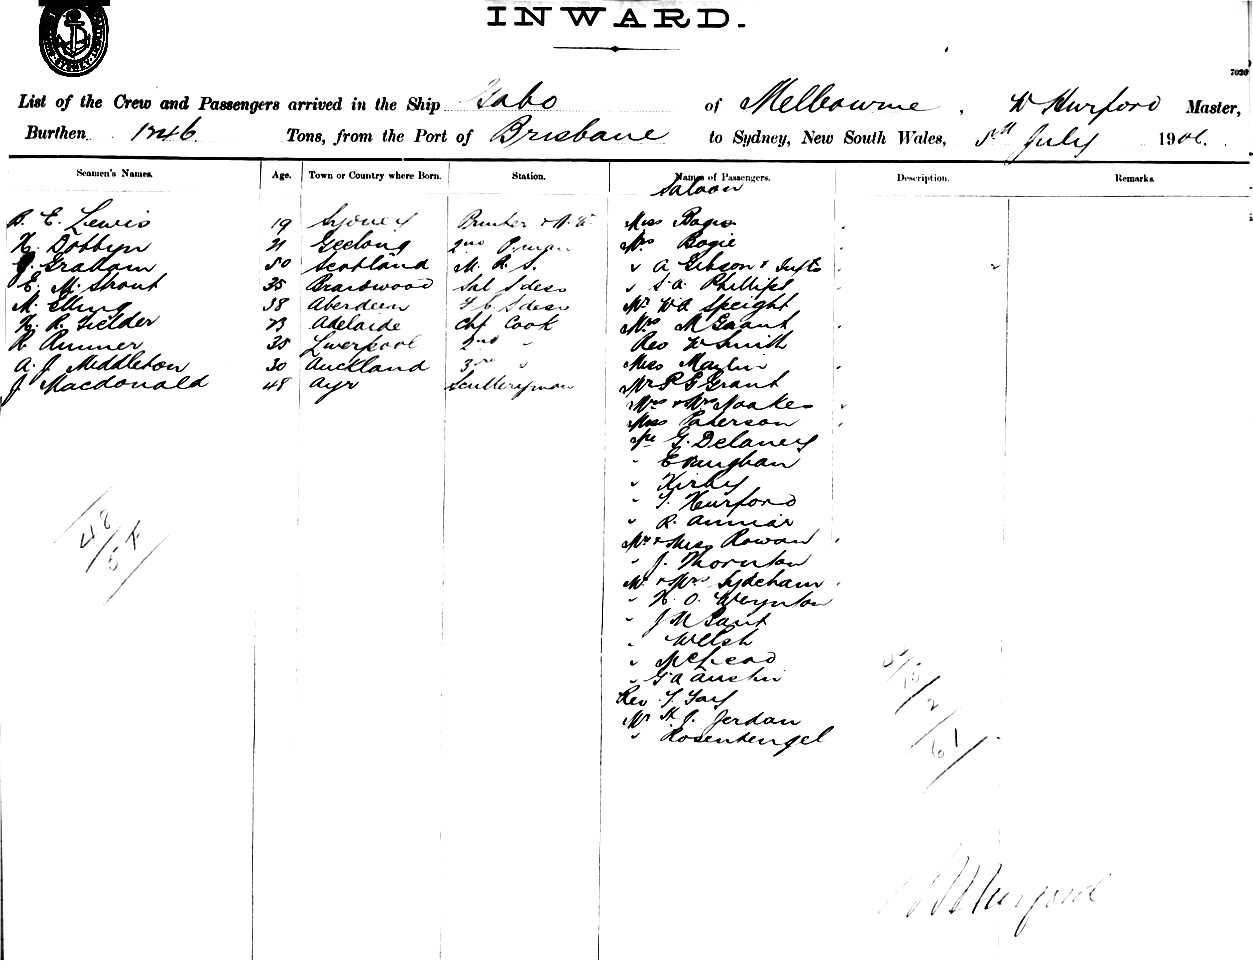 INWARD.
7020
List of the Crew and Passengers arrived in the Ship Gabo of Melbourne, W Hurford Master,
Burthen 1246 Tons, from the Port of Brisbane to Sydney, New South Wales, 5th July 1906.
Seamen's Names. Age. Town or Country where Born. Station. Names of Passengers. Description. Remarks.
Saloon
B. E. Lewis 19 Sydney Miss Bogie
H. Dobbyn 21 Geelong 2nd Mrs Bogie
G. Graham 50 Scotland M. R. S. " A Gibson &
E. M. Strout 35 Braidwood Sal Sdess " S. A. Phillips
M. Elling 38 Aberdeen F. C. Sdess Mr W A Speight
H. R. Fielder 23 Adelaide Chf Cook Mrs M Grant
R. Rumner 35 Liverpool 2nd " Rev W Smith
A. J. Middleton 30 Auckland 3rd " Miss Maylin
J. Macdonald 48 Ayr Sculleryman Mr P G Grant
Mrs & Mrs Noakes
Miss Paterson
Mr G. Delaney
" E Vaughan
" Kirby
" T. Hurford
" R.
Mr & Miss Rowan
" J. Thornton
Mr & Mrs Sydeham
" H. O. Weynton
" J M Gant
" Welsh
" McLeod
" G A Austin
Rev T. Fay
Mr H. J. Jordan
" Rosenhengel
48
54
2
61
W Hurford